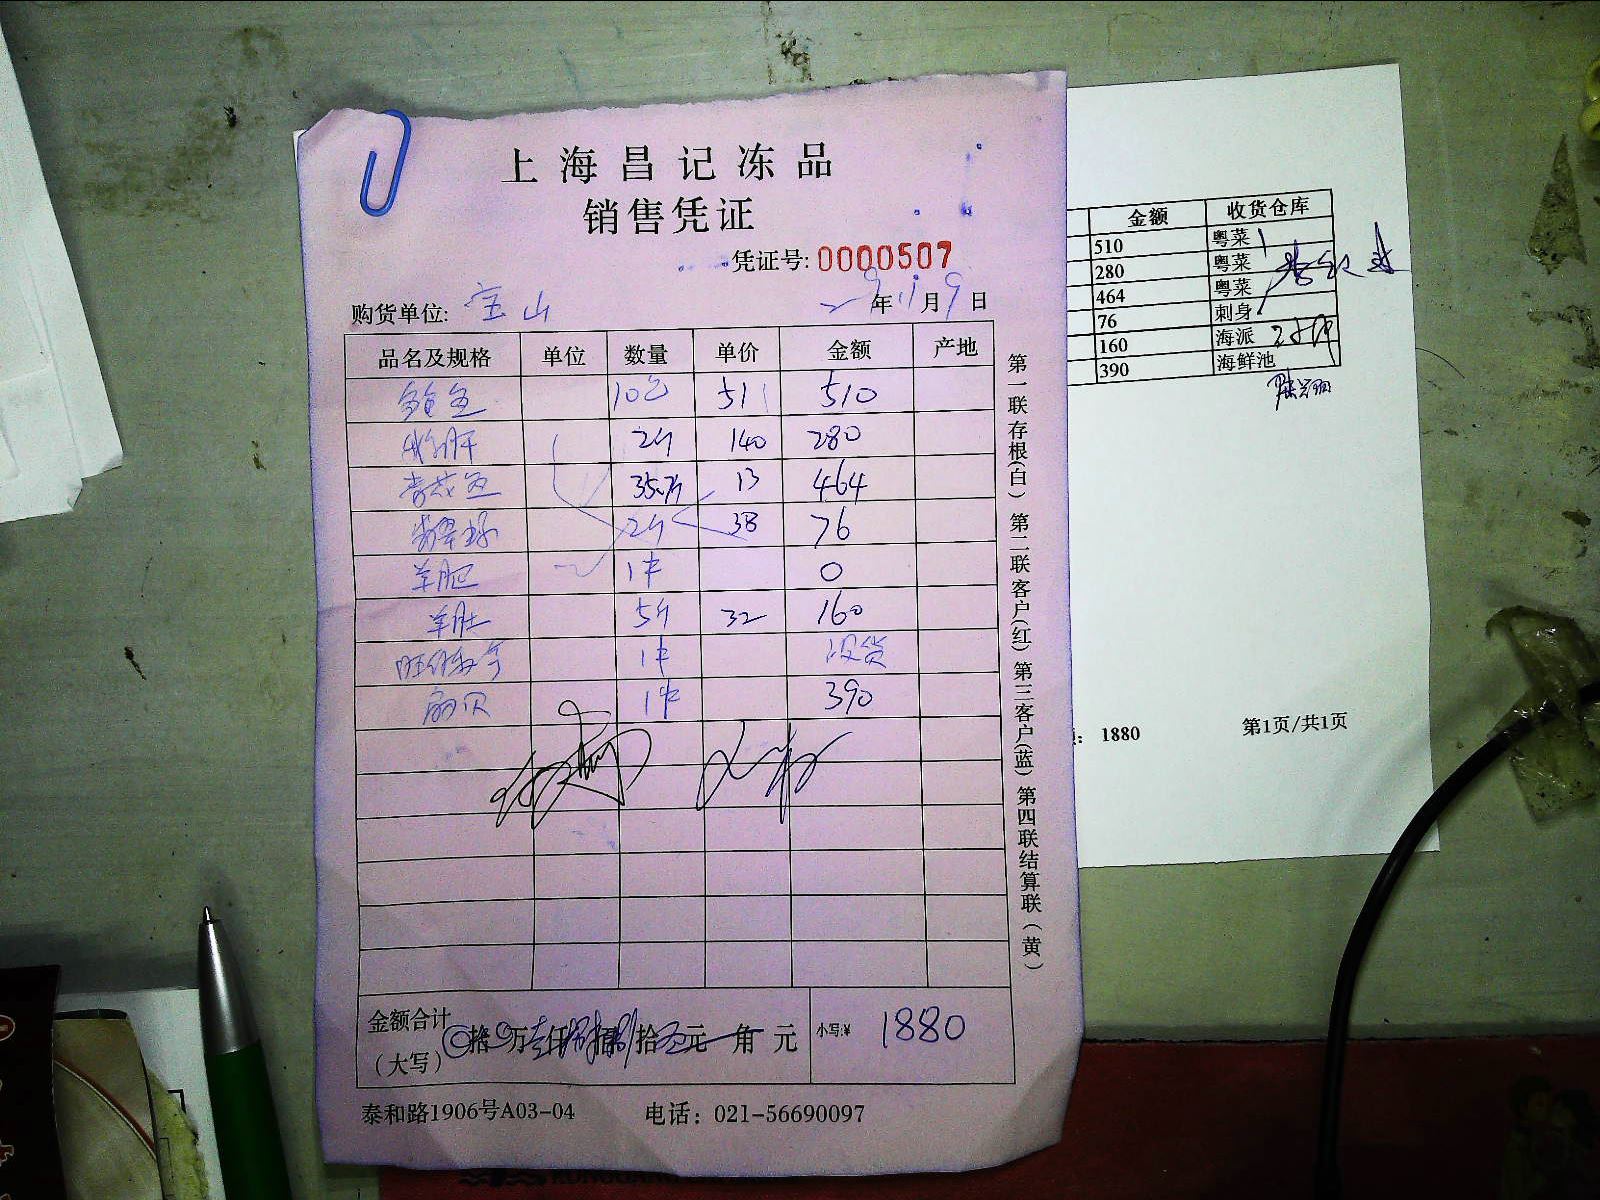 上海昌记冻品
销售凭证
凭证号: 0000507
购货单位: 宝山 年 11月9日
品名及规格 单位 数量 单价 金额 产地
鲍鱼 10 51 510
2斤 140 280
鱼 35.7斤 13 464
翡翠 2斤 38 76
羊肥 1件 0
羊肚 5斤 32 160
旺仔 1件 没货
扇贝 1件 390
金额合计
(大写) 拾 万壹仟捌佰捌拾 元 角 元 小写:¥ 1880
泰和路1906号A03-04 电话: 021-56690097
第一联存根(白) 第二联客户(红) 第三客户(蓝) 第四联结算联(黄)
金额 收货仓库
510 粤菜
280 粤菜
464 粤菜
76 刺身
160 海派
390 海鲜池
: 1880 第1页/共1页